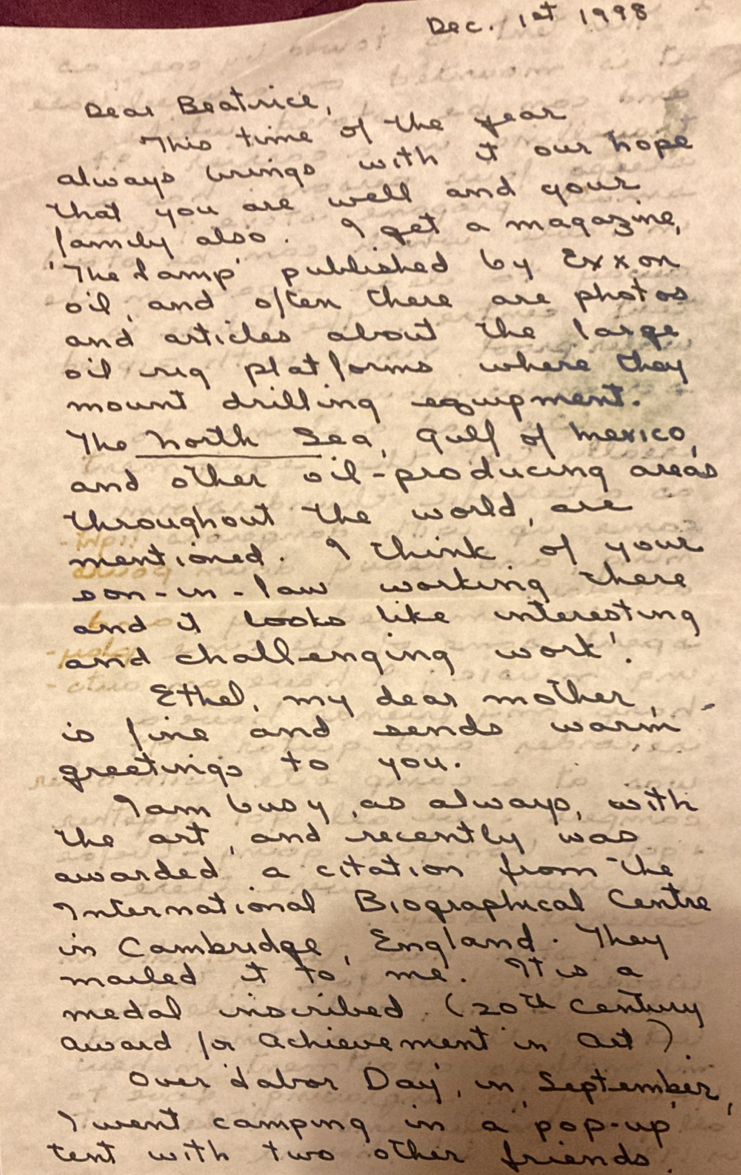 Dec. 1st 1998
Dear Beatrice,
This time of the year
always brings with it our hope
that you are well and your
family also. I get a magazine,
'The Lamp' published by Exxon
oil, and often there are photos
and articles about the large
oil rig platforms where they
mount drilling equipment.
The North Sea, Gulf of Mexico,
and other oil-producing areas
throughout the world, are
mentioned. I think of your
son-in-law working there
and it looks like interesting
and challenging work!
Ethel, my dear mother,
is fine and sends warm
greetings to you.
I am busy, as always, with
the art, and recently was
awarded a citation from the
International Biographical Centre
in Cambridge, England. They
mailed it to me. It is a
medal inscribed. (20th Century
award for Achievement in Art).
Over 'Labor Day', in September,
I went camping in a 'pop-up'
tent with two other friends.